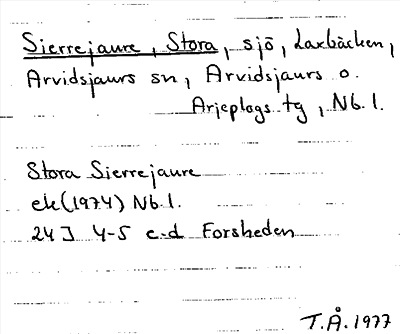 Sierrejaure, Stora, sjö, Laxbäcken,
Arvidsjaurs sn, Arvidsjaurs o.
Arjeplogs tg, Nb.l.
Stora Sierrejaure
ek(1974) Nb.l.
24J 4-5 c-d Forsheden
T.Å. 1977